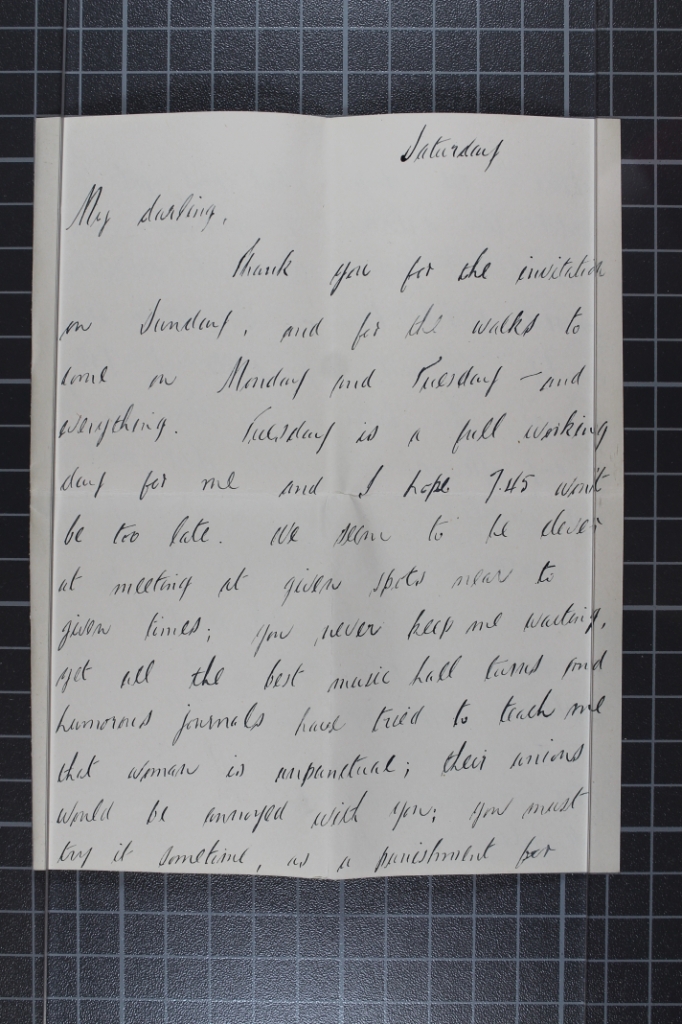 Saturday
My darling,
Thank you for the invitation
on Sunday, and for the walks to
come on Monday and Tuesday – and
everything. Tuesday is a full working
day for me and I hope 7.45 won't
be too late. We seem to be clever
at meeting at given spots near to
given times; you never keep me waiting,
yet all the best music hall turns and
humorous journals have tried to teach me
that woman is unpunctual; their unions
would be annoyed with you; you must
try it sometime, as a punishment for